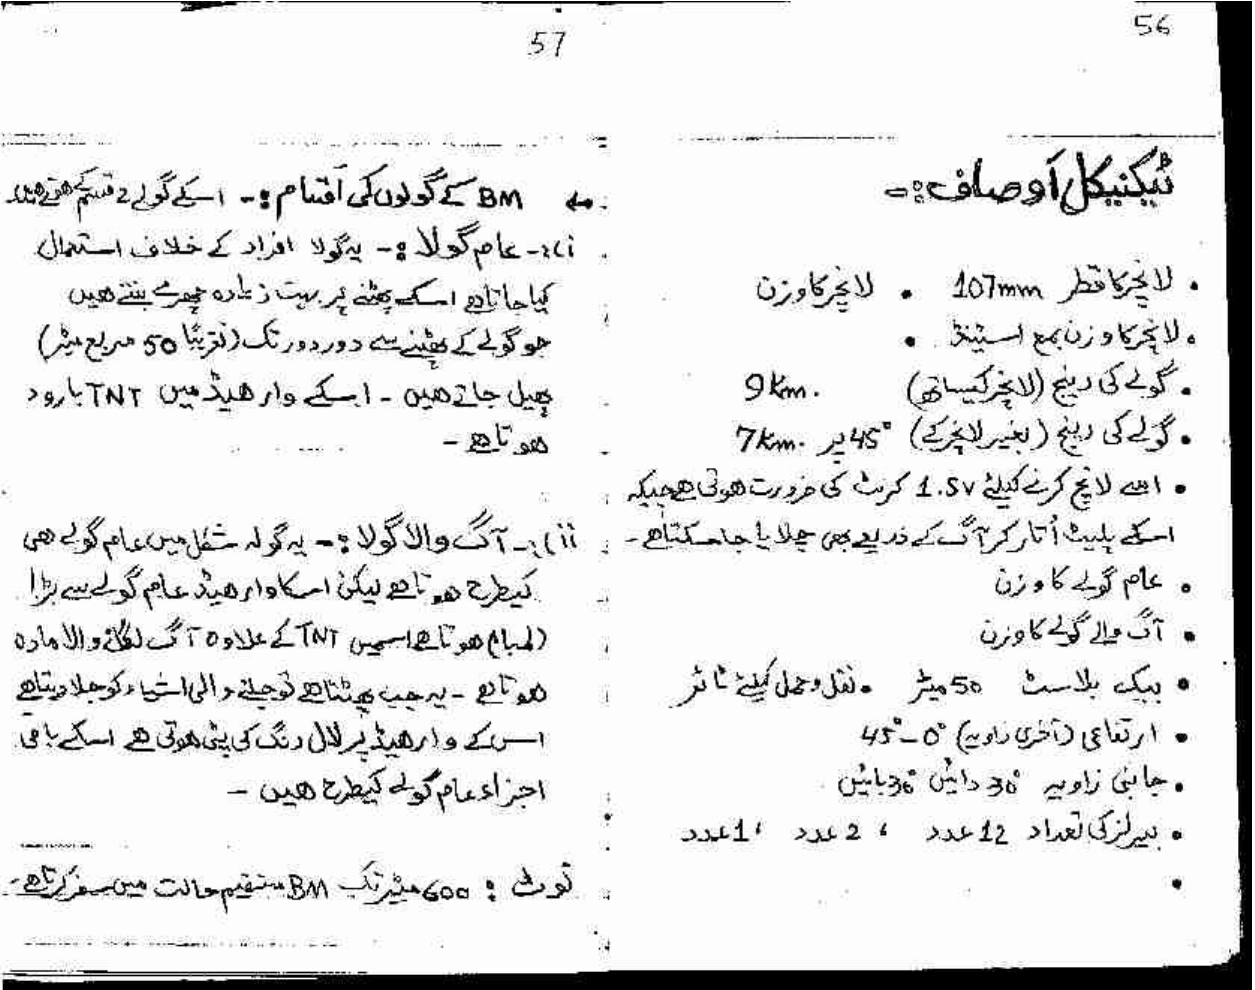 56
ٹیکنیکل أوصاف :-
• لانچر کا قطر 107mm • لانچر کا وزن
• لانچر کا وزن بمع اسٹینڈ •
• گولے کی رینج (لانچر کیساتھ) 9Km.
• گولے کی رینج (بغیر لانچر کے) 45° پر 7Km.
• اسے لانچ کرنے کیلئے 1.5v کرنٹ کی ضرورت ہوتی ہے جبکہ
اسکے پلیٹ اُتار کر آگ کے ذریعے بھی چلایا جا سکتا ہے -
• عام گولے کا وزن
• آگ والے گولے کا وزن
• بیک بلاسٹ 50 میٹر • نقل و حمل کیلئے ٹائر
• ارتفاعی (آخری زاویہ) 0° - 45°
• جانبی زاویہ 30° دائیں 30° بائیں
• بیرلز کی تعداد 12 عدد ، 2 عدد ، 1 عدد
•
57
BM کے گولوں کی أقسام :- اسکے گولے 2 قسم کے ہوتے ہیں
i):- عام گولا :- یہ گولا افراد کے خلاف استعمال
کیا جاتا ہے اسکے پھٹنے پر بہت زیادہ چھرے بنتے ہیں
جو گولے کے پھٹنے سے دور دور تک (تقریبًا 50 مربع میٹر)
پھیل جاتے ہیں - اسکے وار ہیڈ میں TNT بارود
ہوتا ہے -
ii):- آگ والا گولا :- یہ گولہ شکل میں عام گولے ہی
کیطرح ہوتا ہے لیکن اسکا وار ہیڈ عام گولے سے بڑا
(لمبا) ہوتا ہے اسمیں TNT کے علاوہ آگ لگانے والا مادہ
ہوتا ہے - یہ جب پھٹتا ہے تو جلنے والی اشیاء کو جلا دیتا ہے
اس کے وار ہیڈ پر لال رنگ کی پٹی ہوتی ہے اسکے باقی
اجزاء عام گولے کیطرح ہیں -
نوٹ : 600 میٹر تک BM مستقیم حالت میں سفر کرتا ہے -